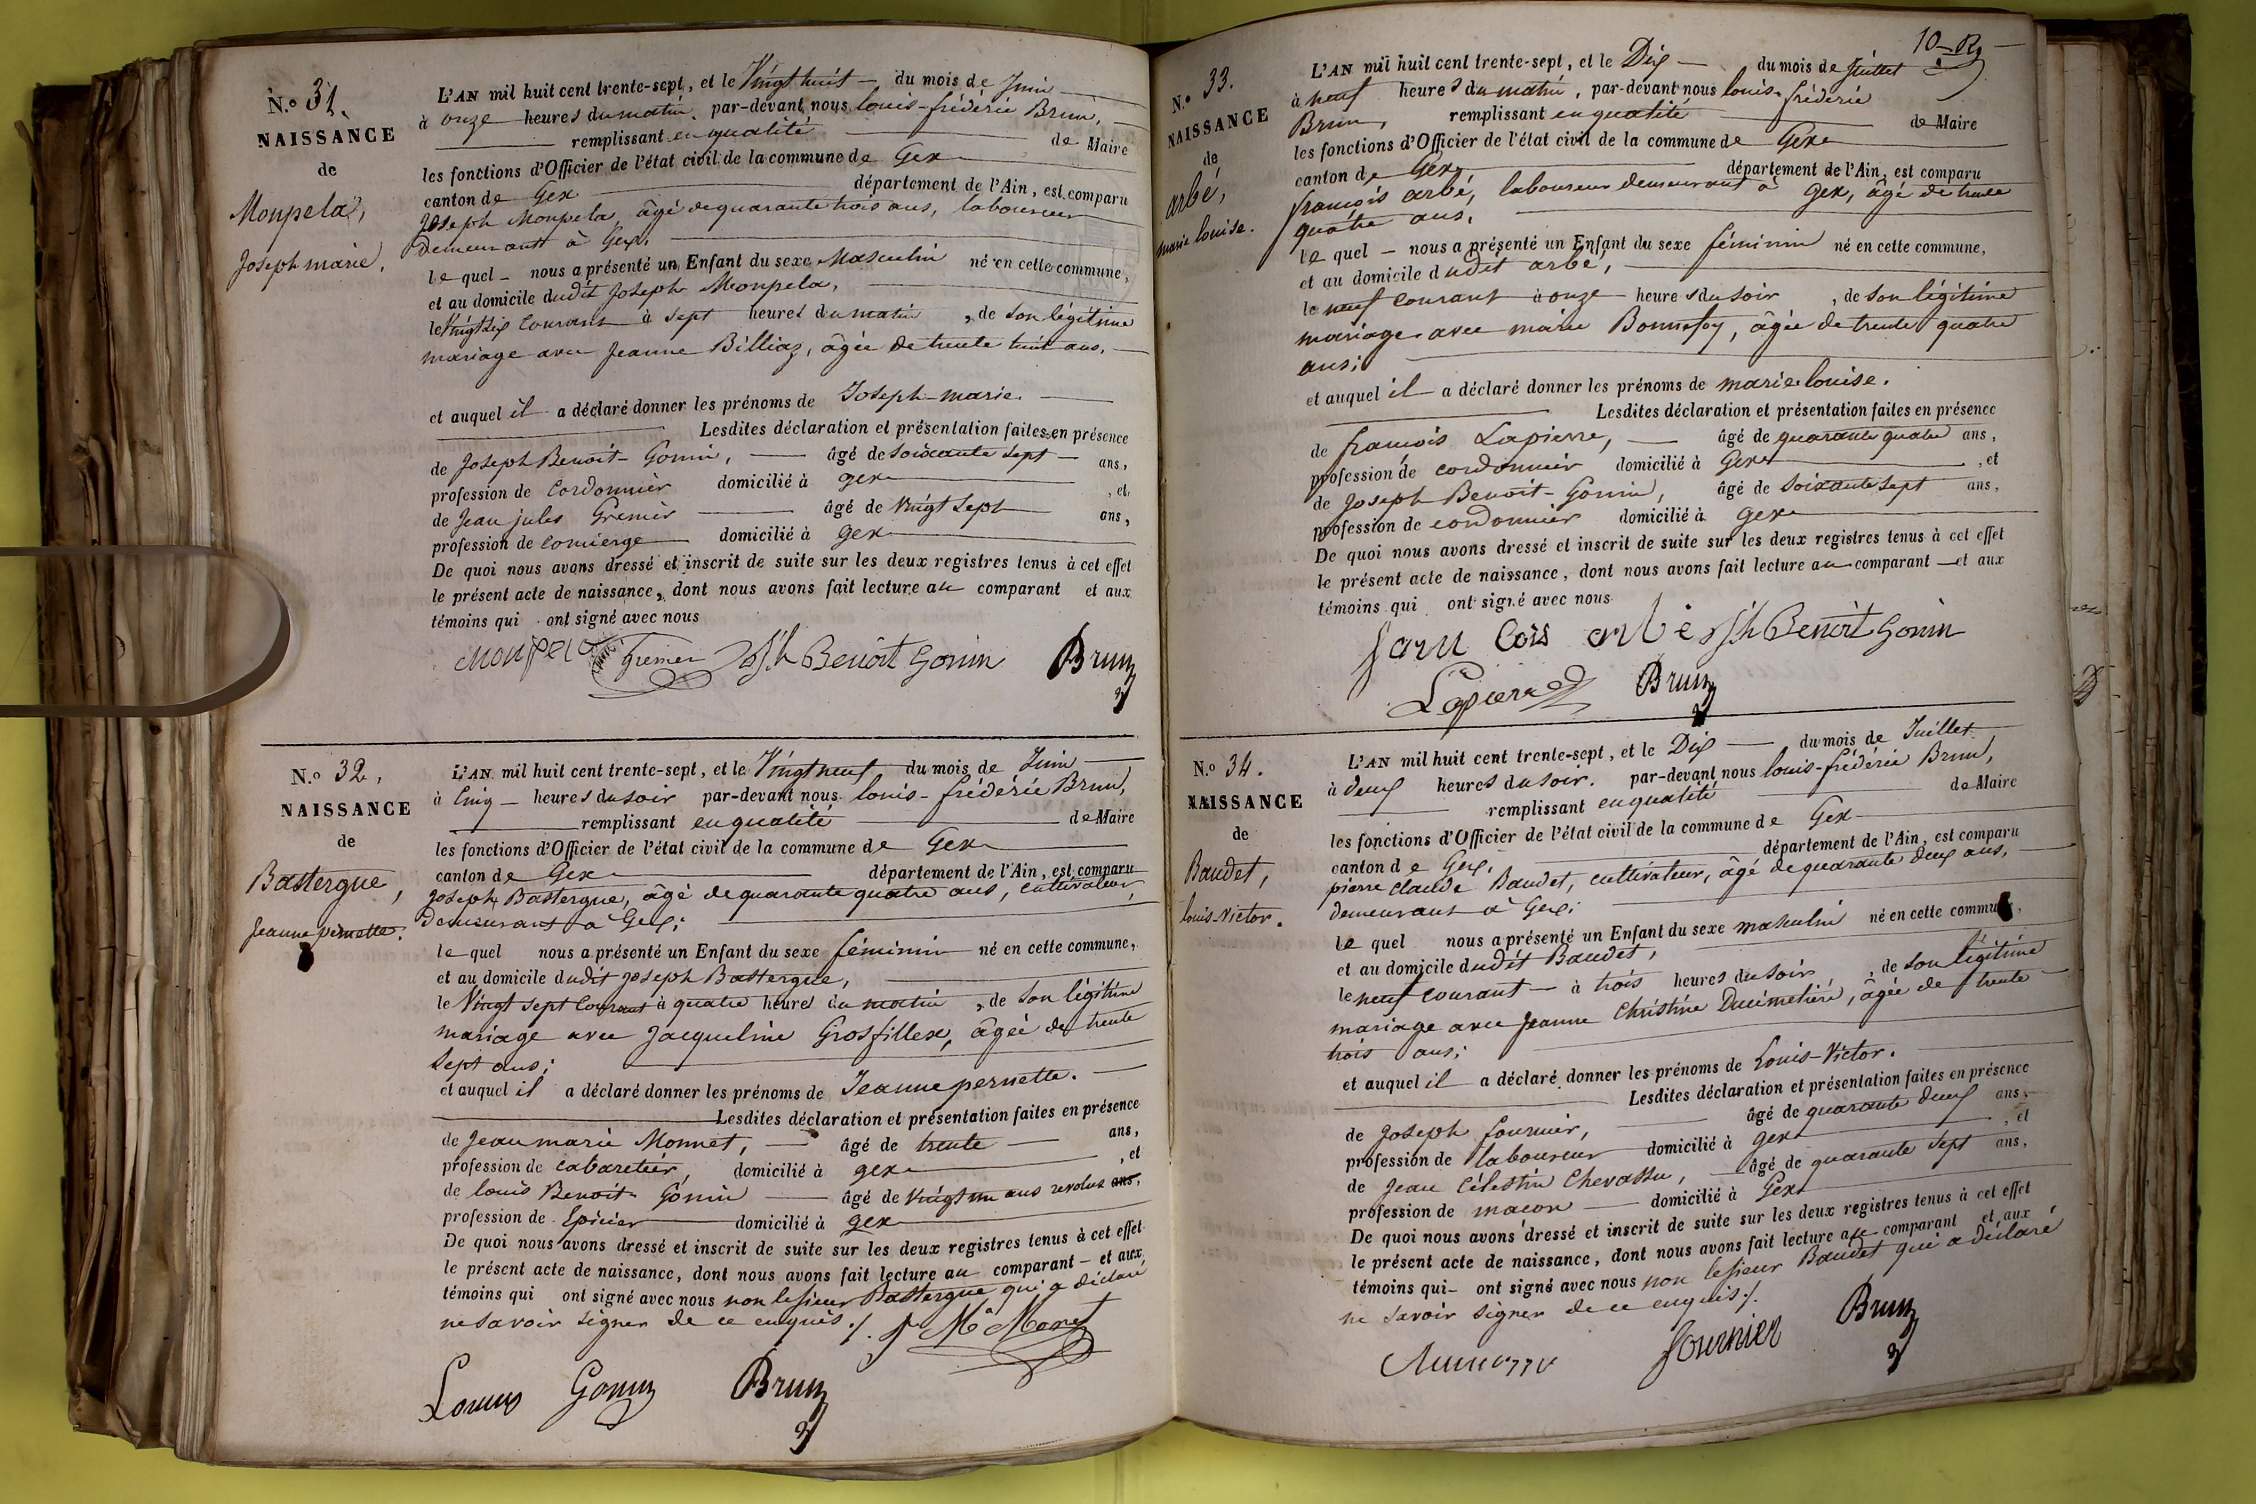 N.o 31.
NAISSANCE
de
Monpela,
Joseph marie.
L'AN mil huit cent trente-sept, et le Vingt huit — du mois de Juin
à onze heures du matin, par-devant nous louis-fréderic Brun,
remplissant en qualité de Maire
les fonctions d'Officier de l'état civil de la commune de Gex
canton de Gex département de l'Ain, est comparu
Joseph Monpela, âgé de quarante trois ans, laboureur
Demeurant à Gex,
le quel — nous a présenté un Enfant du sexe Masculin né en cette commune,
et au domicile dudit Joseph Monpela,
le Vingt six Courant à sept heures du matin, de son légitime
mariage avec Jeanne Billiaz, âgée de trente huit ans,
et auquel il a déclaré donner les prénoms de Joseph-marie.
Lesdites déclaration et présentation faites en présence
de Joseph Benoit Gonin, — âgé de soixante sept — ans,
profession de Cordonnier domicilié à gex , et
de Jean jules Grenier — âgé de Vingt sept ans,
profession de Concierge domicilié à gex
De quoi nous avons dressé et inscrit de suite sur les deux registres tenus à cet effet
le présent acte de naissance, dont nous avons fait lecture au comparant et aux
témoins qui ont signé avec nous
Monpela Grenier Jph Benoît Gonin Brun
N.o 32,
NAISSANCE
de
Bastergue,
Jeanne pernette.
L'AN mil huit cent trente-sept, et le Vingt neuf du mois de Juin
à Cinq — heures du soir par-devant nous louis-fréderic Brun,
remplissant en qualité de Maire
les fonctions d'Officier de l'état civil de la commune de Gex
canton de Gex département de l'Ain, est comparu
Joseph Bastergue, âgé de quarante quatre ans, cultivateur,
Demeurant à Gex;
le quel nous a présenté un Enfant du sexe féminin né en cette commune,
et au domicile dudit Joseph Bastergue,
le Vingt sept Courant à quatre heures du matin, de son légitime
mariage avec Jacqueline Grosfillex, âgée de trente
sept ans;
et auquel il a déclaré donner les prénoms de Jeanne pernette.
Lesdites déclaration et présentation faites en présence
de Jean marie Monnet, — âgé de trente — ans,
profession de cabaretier, domicilié à gex , et
de louis Benoit Gonin — âgé de Vingt un ans revolus ans,
profession de Epicier domicilié à gex
De quoi nous avons dressé et inscrit de suite sur les deux registres tenus à cet effet
le présent acte de naissance, dont nous avons fait lecture au comparant — et aux
témoins qui ont signé avec nous non le sieur Bastergue qui a déclaré
ne savoir signer de ce enquis./. J M Monet
Louis Gonin Brun
10
N.o 33.
NAISSANCE
de
arbé,
marie louise.
L'AN mil huit cent trente-sept, et le Dix — du mois de Juillet
à neuf heures du matin, par-devant nous louis-fréderic
Brun, remplissant en qualité de Maire
les fonctions d'Officier de l'état civil de la commune de Gex
canton de Gex département de l'Ain, est comparu
françois arbé, laboureur demeurant à Gex, âgé de trente
quatre ans,
le quel — nous a présenté un Enfant du sexe féminin né en cette commune,
et au domicile dudit arbé,
le neuf courant à onze heures du soir, de son légitime
mariage avec marie Bonnefoy, âgée de trente quatre
ans;
et auquel il — a déclaré donner les prénoms de marie louise.
Lesdites déclaration et présentation faites en présence
de françois Lapierre, — âgé de quarante quatre ans,
profession de cordonnier domicilié à Gex , et
de Joseph Benoit-Gonin, âgé de soixante sept ans,
profession de cordonnier domicilié à gex
De quoi nous avons dressé et inscrit de suite sur les deux registres tenus à cet effet
le présent acte de naissance, dont nous avons fait lecture au comparant — et aux
témoins qui ont signé avec nous
arbé Jph Benoît Gonin
Lapierre Brun
N.o 34.
NAISSANCE
de
Baudet,
louis-Victor.
L'AN mil huit cent trente-sept, et le Dix — du mois de Juillet
à deux heures du soir. par-devant nous louis-fréderic Brun,
remplissant en qualité de Maire
les fonctions d'Officier de l'état civil de la commune de Gex
canton de Gex, département de l'Ain, est comparu
pierre claude Baudet, cultivateur, âgé de quarante deux ans,
demeurant à Gex;
le quel nous a présenté un Enfant du sexe masculin né en cette commune,
et au domicile dudit Baudet,
le neuf courant — à trois heures du soir, de son légitime
mariage avec Jeanne Christine Ducimetière, âgée de trente
trois ans;
et auquel il a déclaré donner les prénoms de Louis-Victor.
Lesdites déclaration et présentation faites en présence
de Joseph fournier, âgé de quarante deux ans,
profession de laboureur domicilié à gex , et
de Jean Célestin Chevassu, âgé de quarante sept ans,
profession de maçon — domicilié à Gex
De quoi nous avons dressé et inscrit de suite sur les deux registres tenus à cet effet
le présent acte de naissance, dont nous avons fait lecture au comparant et aux
témoins qui — ont signé avec nous non le sieur Baudet qui a déclaré
ne savoir signer de ce enquis./.
fournier Brun